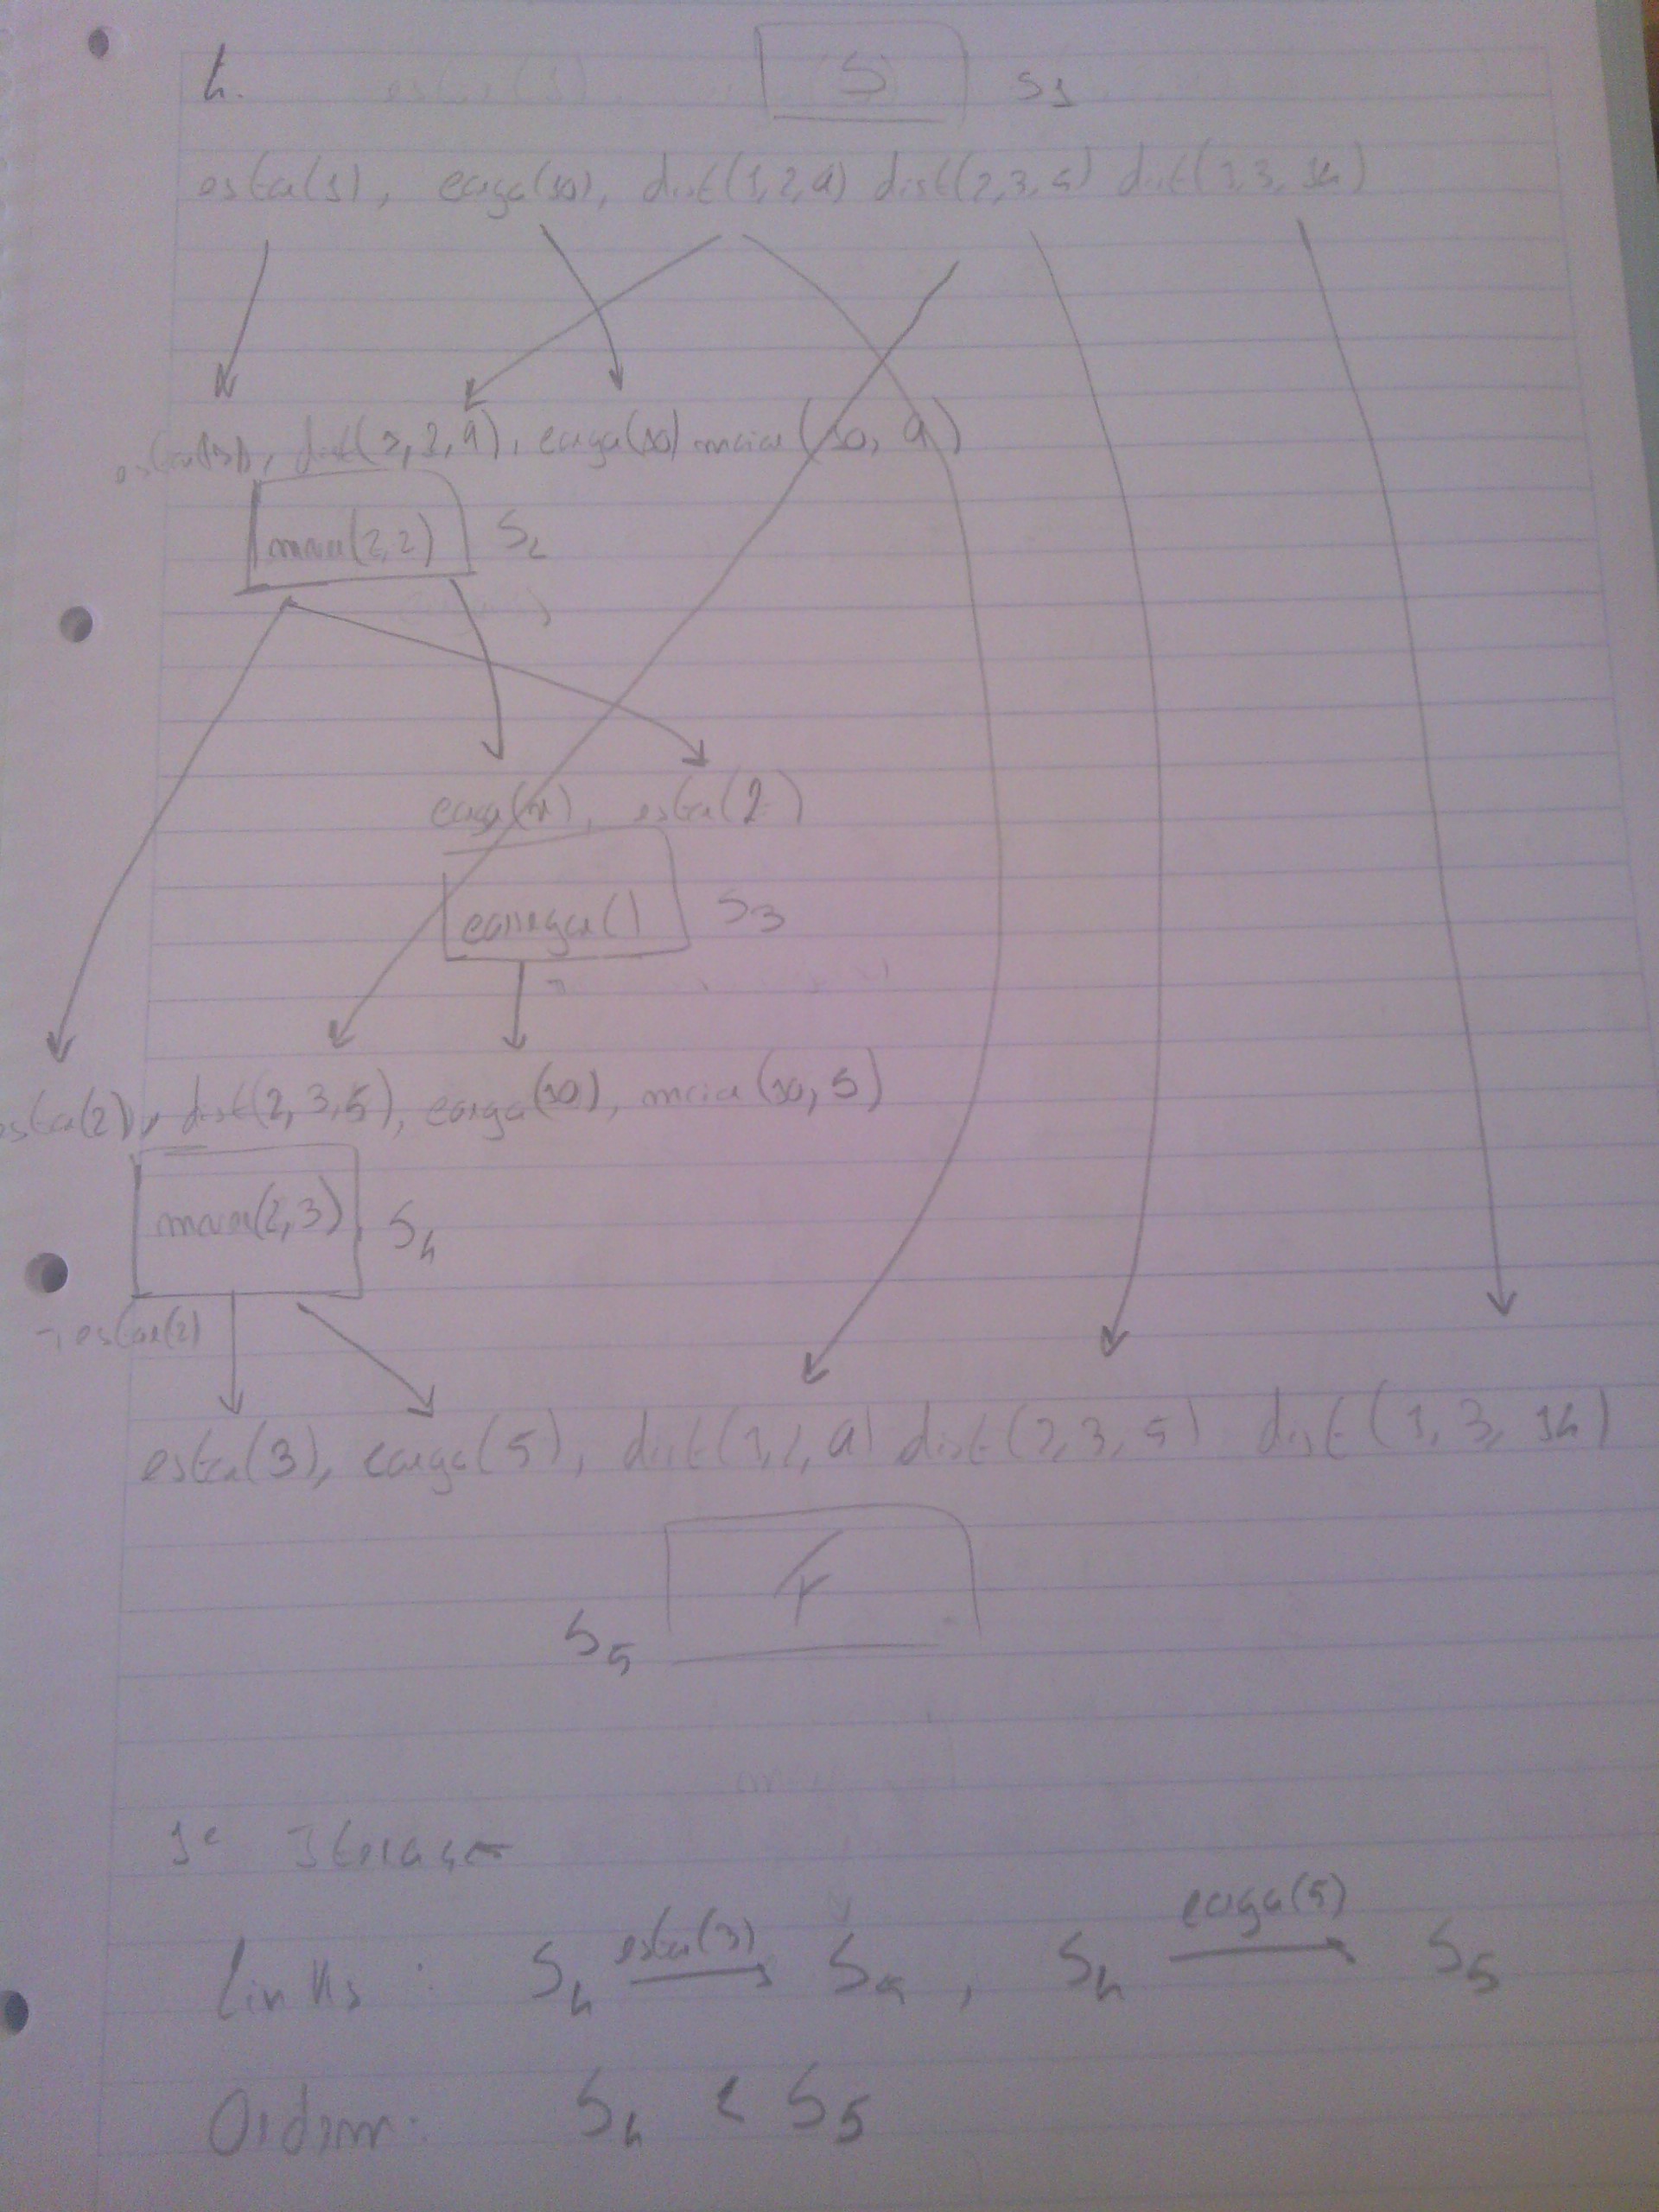 S S1
esta(1), carga(10), dist(1,2,9) dist(2,3,5) dist(1,3,14)
dist(1,2,9), carga(10) maior(10, 9)
S2
esta(2)
carregar() S3
esta(2), dist(2,3,5), carga(10), maior(10,5)
mover(2,3) S4
¬esta(2)
esta(3), carga(5), dist(1,2,9) dist(2,3,5) dist(1,3,14)
F
S5
1ª Iteração
Links: S4 esta(3)→ S5, S4 carga(5)→ S5
Ordem: S4 < S5